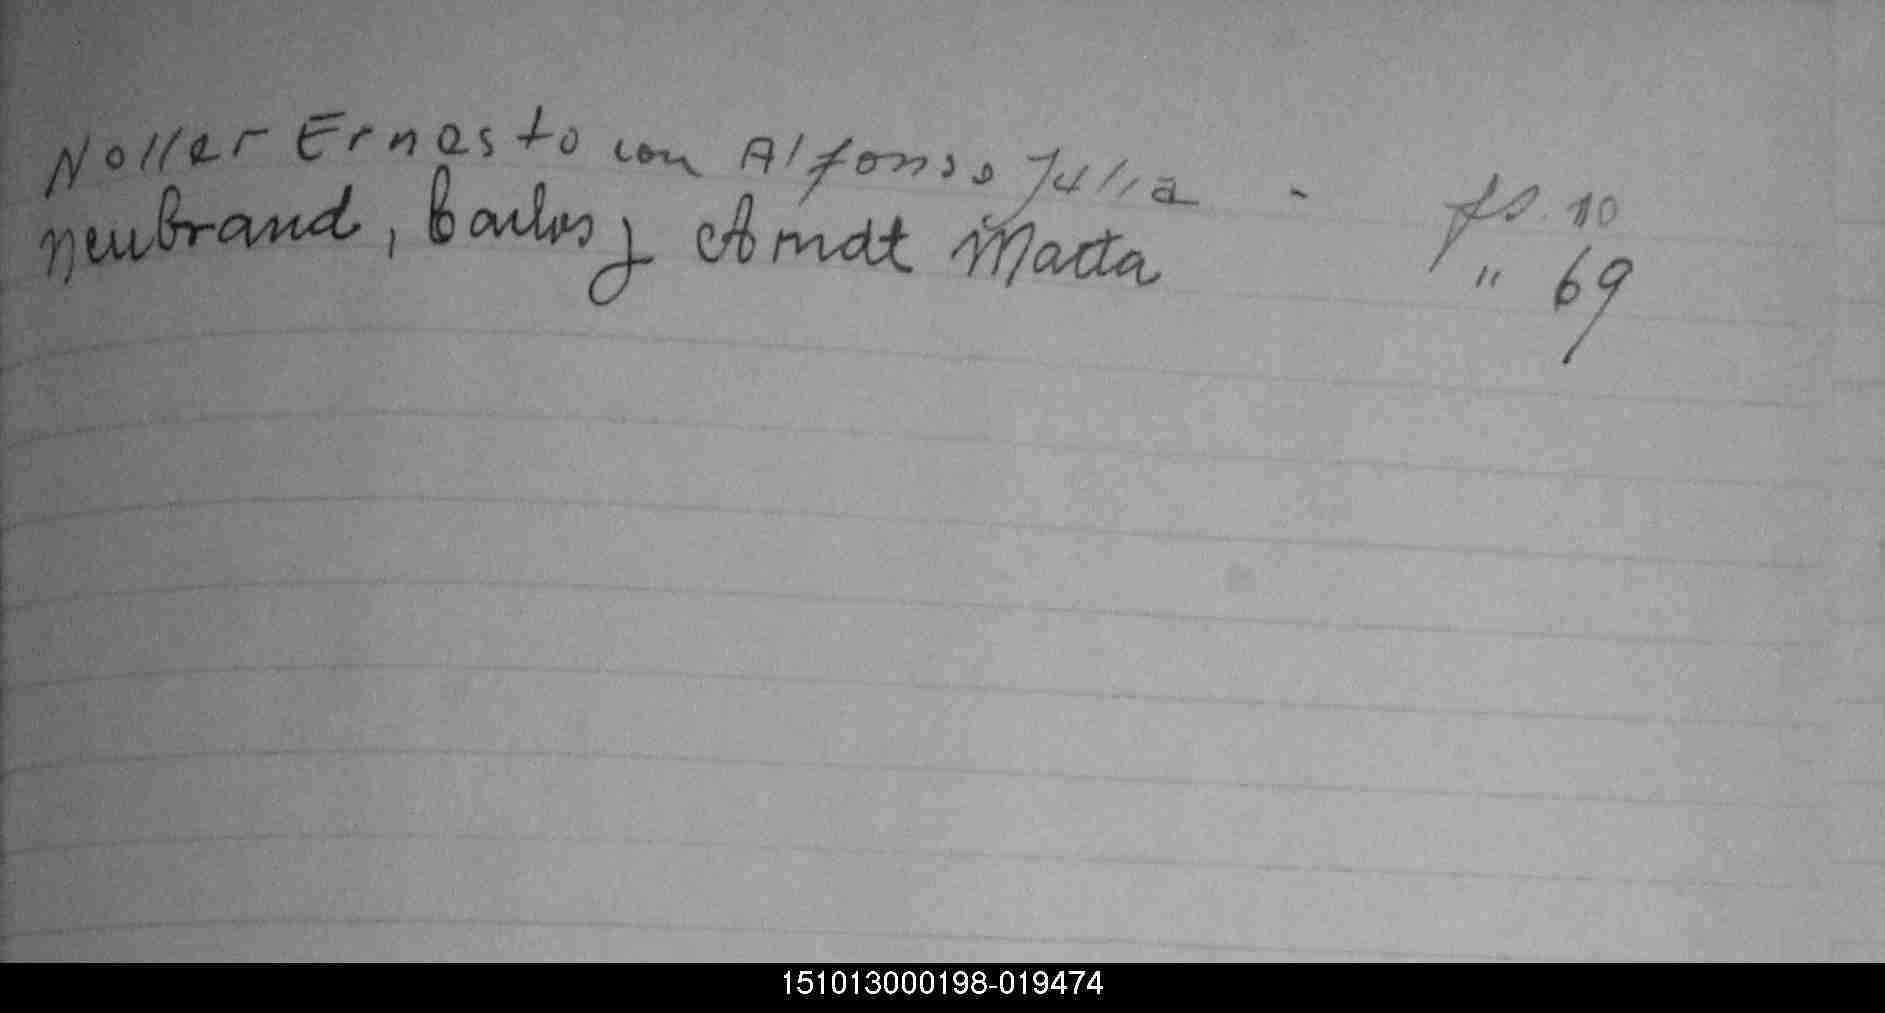 Noller Ernesto con Alfonso Julia - fs. 10
Neubrand, Carlos y Arndt Marta " 69
151013000198-019474